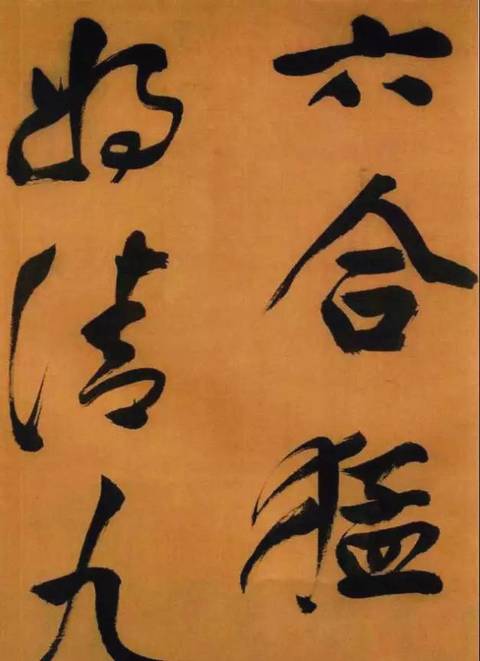 六合猛
将清九